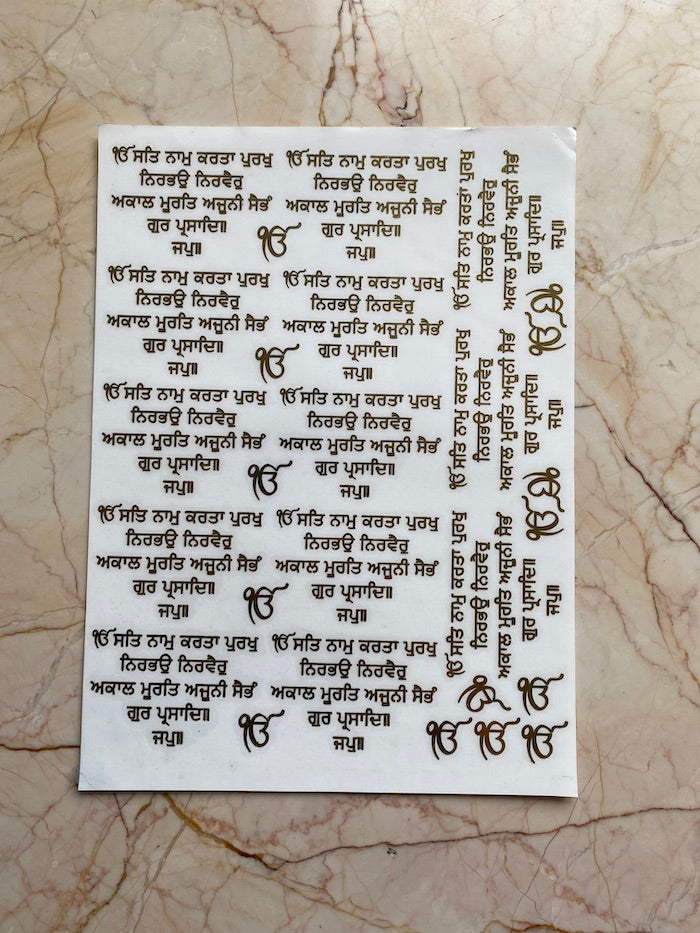 ੴ ਸਤਿ ਨਾਮੁ ਕਰਤਾ ਪੁਰਖੁ
ਨਿਰਭਉ ਨਿਰਵੈਰੁ
ਅਕਾਲ ਮੂਰਤਿ ਅਜੂਨੀ ਸੈਭੰ
ਗੁਰ ਪ੍ਰਸਾਦਿ॥
ਜਪੁ॥
ੴ
ੴ ਸਤਿ ਨਾਮੁ ਕਰਤਾ ਪੁਰਖੁ
ਨਿਰਭਉ ਨਿਰਵੈਰੁ
ਅਕਾਲ ਮੂਰਤਿ ਅਜੂਨੀ ਸੈਭੰ
ਗੁਰ ਪ੍ਰਸਾਦਿ॥
ਜਪੁ॥
ੴ ਸਤਿ ਨਾਮੁ ਕਰਤਾ ਪੁਰਖੁ
ਨਿਰਭਉ ਨਿਰਵੈਰੁ
ਅਕਾਲ ਮੂਰਤਿ ਅਜੂਨੀ ਸੈਭੰ
ਗੁਰ ਪ੍ਰਸਾਦਿ॥
ਜਪੁ॥
ੴ
ੴ ਸਤਿ ਨਾਮੁ ਕਰਤਾ ਪੁਰਖੁ
ਨਿਰਭਉ ਨਿਰਵੈਰੁ
ਅਕਾਲ ਮੂਰਤਿ ਅਜੂਨੀ ਸੈਭੰ
ਗੁਰ ਪ੍ਰਸਾਦਿ॥
ਜਪੁ॥
ੴ ਸਤਿ ਨਾਮੁ ਕਰਤਾ ਪੁਰਖੁ
ਨਿਰਭਉ ਨਿਰਵੈਰੁ
ਅਕਾਲ ਮੂਰਤਿ ਅਜੂਨੀ ਸੈਭੰ
ਗੁਰ ਪ੍ਰਸਾਦਿ॥
ਜਪੁ॥
ੴ
ੴ ਸਤਿ ਨਾਮੁ ਕਰਤਾ ਪੁਰਖੁ
ਨਿਰਭਉ ਨਿਰਵੈਰੁ
ਅਕਾਲ ਮੂਰਤਿ ਅਜੂਨੀ ਸੈਭੰ
ਗੁਰ ਪ੍ਰਸਾਦਿ॥
ਜਪੁ॥
ੴ ਸਤਿ ਨਾਮੁ ਕਰਤਾ ਪੁਰਖੁ
ਨਿਰਭਉ ਨਿਰਵੈਰੁ
ਅਕਾਲ ਮੂਰਤਿ ਅਜੂਨੀ ਸੈਭੰ
ਗੁਰ ਪ੍ਰਸਾਦਿ॥
ਜਪੁ॥
ੴ
ੴ ਸਤਿ ਨਾਮੁ ਕਰਤਾ ਪੁਰਖੁ
ਨਿਰਭਉ ਨਿਰਵੈਰੁ
ਅਕਾਲ ਮੂਰਤਿ ਅਜੂਨੀ ਸੈਭੰ
ਗੁਰ ਪ੍ਰਸਾਦਿ॥
ਜਪੁ॥
ੴ ਸਤਿ ਨਾਮੁ ਕਰਤਾ ਪੁਰਖੁ
ਨਿਰਭਉ ਨਿਰਵੈਰੁ
ਅਕਾਲ ਮੂਰਤਿ ਅਜੂਨੀ ਸੈਭੰ
ਗੁਰ ਪ੍ਰਸਾਦਿ॥
ਜਪੁ॥
ੴ
ੴ ਸਤਿ ਨਾਮੁ ਕਰਤਾ ਪੁਰਖੁ
ਨਿਰਭਉ ਨਿਰਵੈਰੁ
ਅਕਾਲ ਮੂਰਤਿ ਅਜੂਨੀ ਸੈਭੰ
ਗੁਰ ਪ੍ਰਸਾਦਿ॥
ਜਪੁ॥
ੴ ਸਤਿ ਨਾਮੁ ਕਰਤਾ ਪੁਰਖੁ
ਨਿਰਭਉ ਨਿਰਵੈਰੁ
ਅਕਾਲ ਮੂਰਤਿ ਅਜੂਨੀ ਸੈਭੰ
ਗੁਰ ਪ੍ਰਸਾਦਿ॥
ਜਪੁ॥
ੴ
ੴ
ੴ ਸਤਿ ਨਾਮੁ ਕਰਤਾ ਪੁਰਖੁ
ਨਿਰਭਉ ਨਿਰਵੈਰੁ
ਅਕਾਲ ਮੂਰਤਿ ਅਜੂਨੀ ਸੈਭੰ
ਗੁਰ ਪ੍ਰਸਾਦਿ॥
ਜਪੁ॥
ੴ
ੴ
ੴ ਸਤਿ ਨਾਮੁ ਕਰਤਾ ਪੁਰਖੁ
ਨਿਰਭਉ ਨਿਰਵੈਰੁ
ਅਕਾਲ ਮੂਰਤਿ ਅਜੂਨੀ ਸੈਭੰ
ਗੁਰ ਪ੍ਰਸਾਦਿ॥
ਜਪੁ॥
ੴ ੴ
ੴ ੴ ੴ